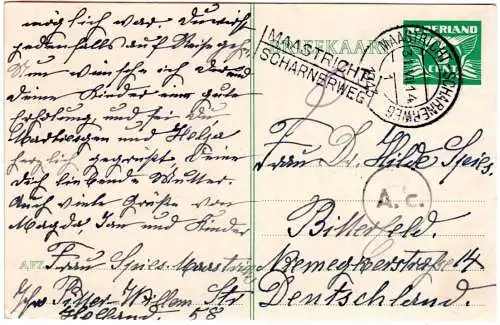 möglich war. Du wirst
jedenfalls auf Reise geh
Nun wünsche ich dir und
deine Kinder eine gute
Erholung und sei du
und Helga
herzlich gegrüsst. Deine
dich liebende Mutter.
Auch viele Grüße von
Magda Jan und Kinder
AFZ. Frau Spies Maastricht
Pitter Willem Str
Holland. 58
BRIEFKAART
NEDERLAND
MAASTRICHT
SCHARNERWEG
MAASTRICHT
SCHARNERWEG
Frau Dr. Hilde Spies.
A.c.
Bitterfeld.
Niemegkerstraße 14
Deutschland.